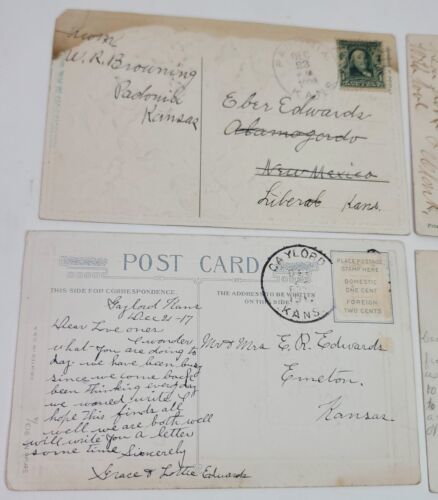 from
W. R. Browning
Padonia
Kansas
DEC
23
KANS
Eber Edwards
Alamogordo
New Mexico
Liberal Kans.
POST CARD
THIS SIDE FOR CORRESPONDENCE.
THE ADDRESS TO BE WRITTEN
ON THIS SIDE
PLACE POSTAGE
STAMP HERE
DOMESTIC
ONE CENT
FOREIGN
TWO CENTS
GAYLORD
KANS.
Gaylord Kans
Dec 21-17
Dear Love ones
I wonder
what you are doing to
day - we have been busy
since we come back
been thinking everyday
we would write. I
hope this finds all
well we are both well
will write you a letter
some time Sincerely
Grace & Lottie Edwards
Mr & Mrs E. R. Edwards
Emeton.
Kansas.
PRINTED IN U.S.A.